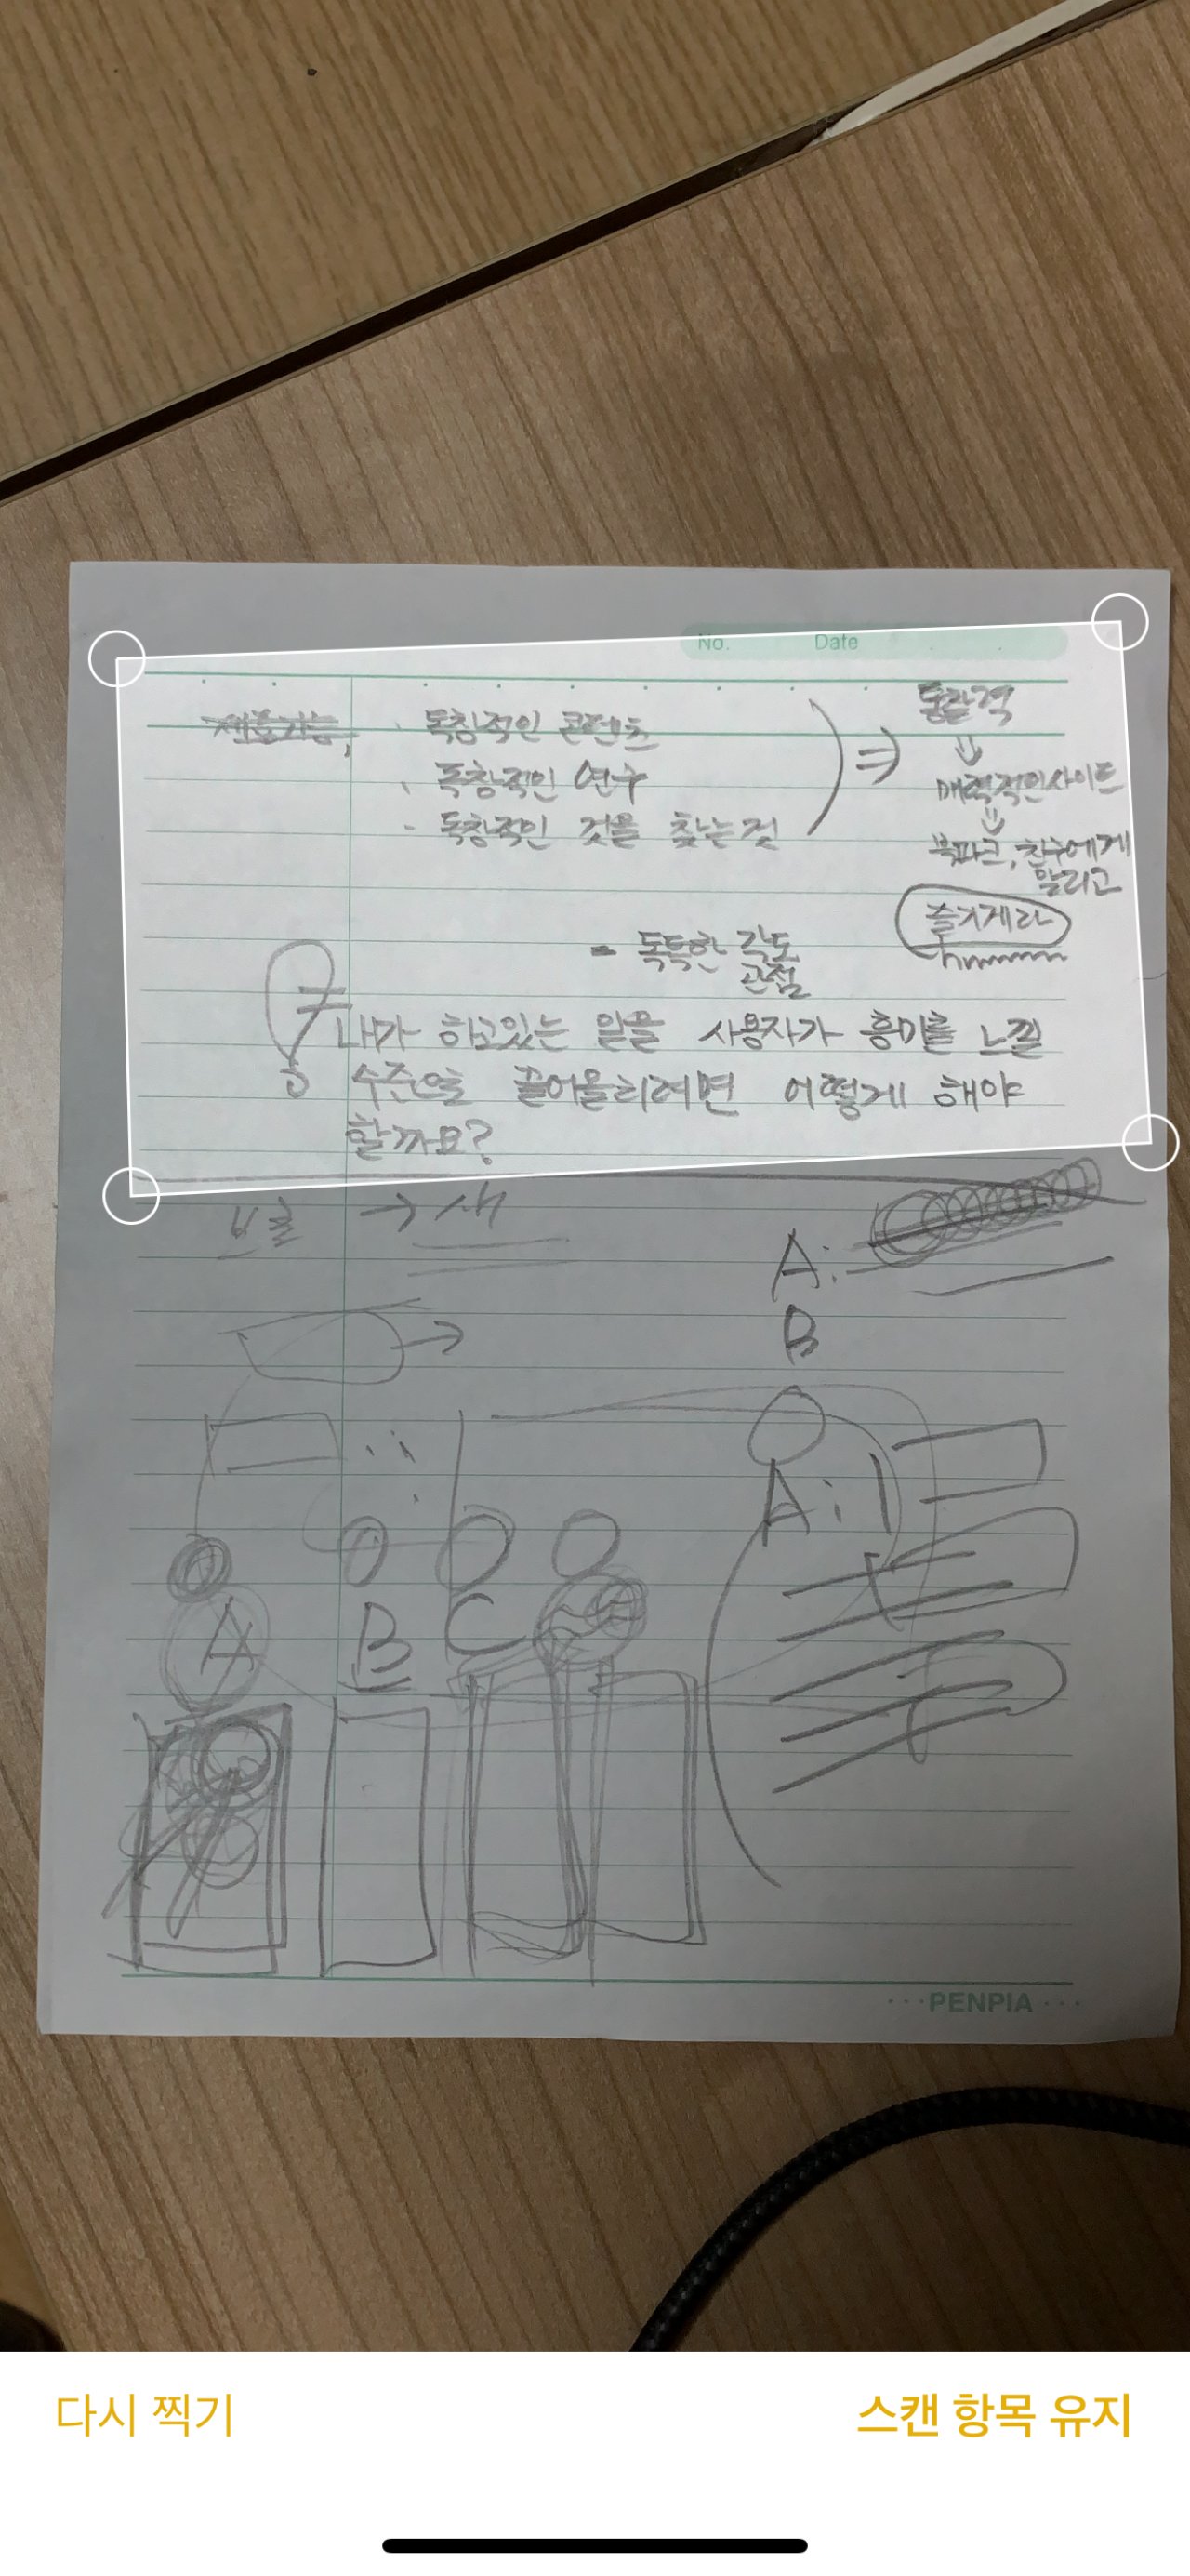 No. Date
독창적인 콘텐츠
독창적인 연구
독창적인 것을 찾는것
통찰력
매력적인사이트
북마크, 친구에게
알리고
즐기게라
hmmmmm
= 독특한 각도
관점
내가 하고있는 일을 사용자가 흥미를 느낄
수준으로 끌어올리려면 어떻게 해야
할까요?
→ 새
A:
B
A:
A B C
PENPIA
다시 찍기
스캔 항목 유지